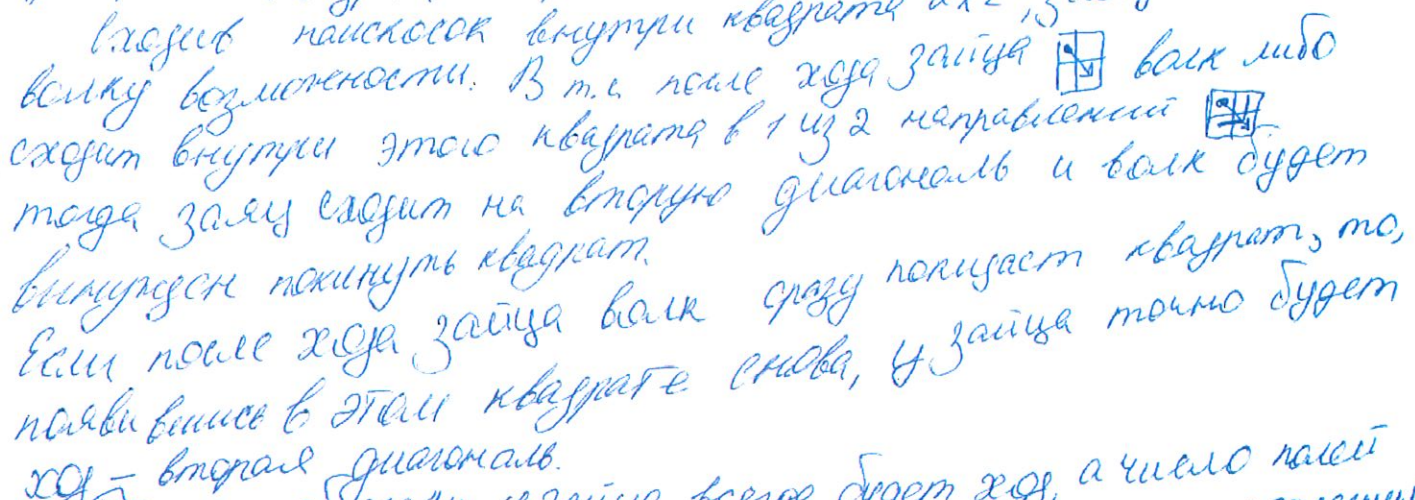 сходив наискосок внутри квадрата 2x2,
волку возможности. В т.с. после хода зайца волк либо
сходит внутри этого квадрата в 1 из 2 направлений
тогда заяц сходит на вторую диагональ и волк будет
вынужден покинуть квадрат.
Если после хода зайца волк сразу покидает квадрат, то,
появившись в этом квадрате снова, у зайца точно будет
ход – вторая диагональ.
зайца всегда будет ход, а число полей